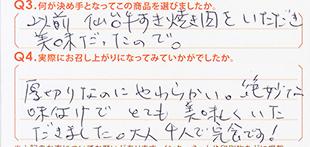 Q3.何が決め手となってこの商品を選びましたか。
以前 仙台牛すき焼き肉をいただき
美味だったので。
Q4.実際にお召し上がりになってみていかがでしたか。
厚切りなのにやわらかい。絶妙な
味付けで とても美味しくいた
だきました。大人4人で完食です!